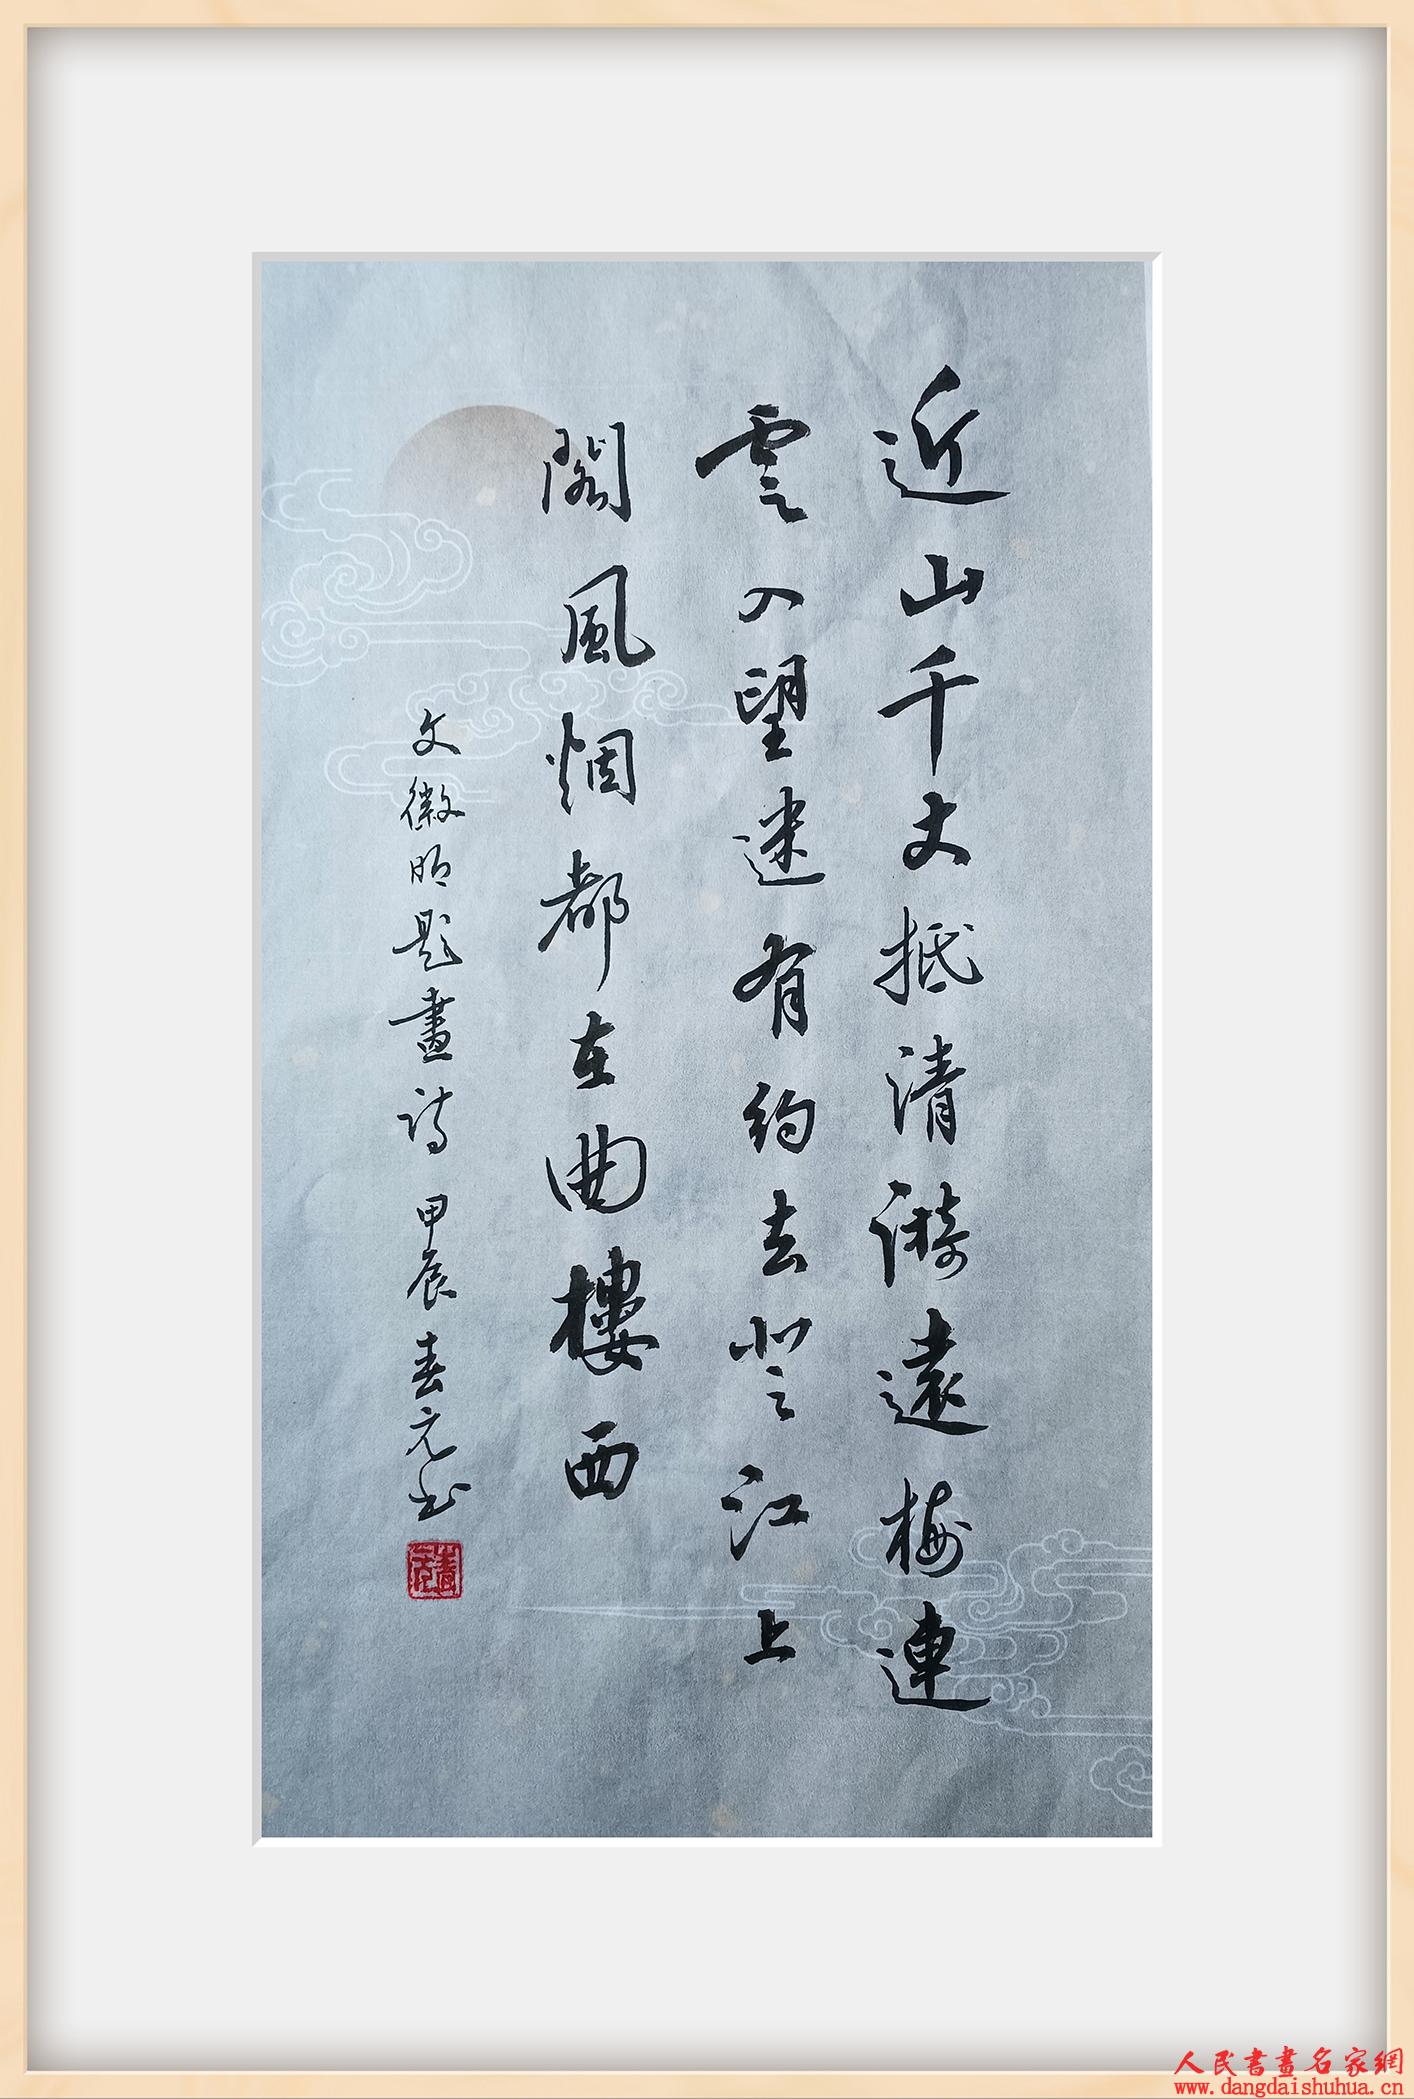 近山千丈抵清漪遠梅連
雲入望迷有約去登江上
閣風烟都在曲樓西
文徵明題畫詩 甲辰春元书
人民書畫名家網
www.dangdaishuhua.cn